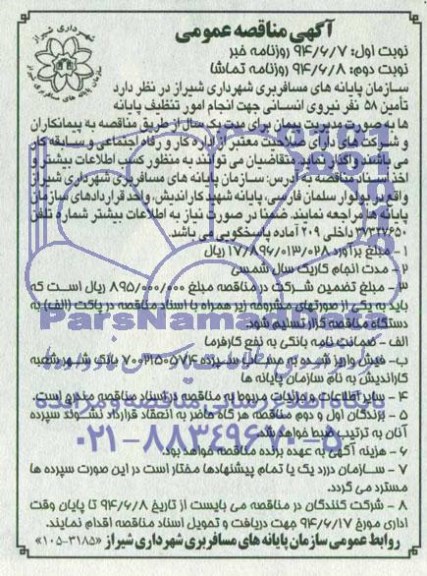 آگهی مناقصه عمومی
شهرداری شیراز
سازمان پایانه های مسافربری شیراز
نوبت اول: ۹۴/۶/۷ روزنامه خبر
نوبت دوم: ۹۴/۶/۸ روزنامه تماشا
سازمان پایانه های مسافربری شهرداری شیراز در نظر دارد
تأمین ۵۸ نفر نیروی انسانی جهت انجام امور تنظیف پایانه
ها به صورت مدیریت پیمان برای مدت یک سال از طریق مناقصه به پیمانکاران
و شرکت های دارای صلاحیت معتبر از اداره کار و رفاه اجتماعی و سابقه کار
می باشند واگذار نماید. متقاضیان می توانند به منظور کسب اطلاعات بیشتر و
اخذ اسناد مناقصه به آدرس: سازمان پایانه های مسافربری شهرداری شیراز
واقع در بولوار سلمان فارسی، پایانه شهید کاراندیش، واحد قراردادهای سازمان
پایانه ها مراجعه نمایند. ضمنا در صورت نیاز به اطلاعات بیشتر شماره تلفن
۳۷۳۲۷۶۵۰ داخلی ۲۰۹ آماده پاسخگویی می باشد.
۱ - مبلغ برآورد ۱۷/۸۹۶/۰۱۳/۰۲۸ ریال
۲ - مدت انجام کار یک سال شمسی
۳ - مبلغ تضمین شرکت در مناقصه مبلغ ۸۹۵/۰۰۰/۰۰۰ ریال است که
باید به یکی از صورتهای مشروحه زیر همراه با اسناد مناقصه در پاکت (الف) به
دستگاه مناقصه گزار تسلیم شود.
الف - ضمانت نامه بانکی به نفع کارفرما
ب- فیش واریز شده به حساب سپرده ۷۰۰۲۱۵۰۵۷۴ بانک شهر شعبه
کاراندیش به نام سازمان پایانه ها
۴ - سایر اطلاعات و جزئیات مربوط به مناقصه در اسناد مناقصه مندرج است.
۵ - برندگان اول و دوم مناقصه هر گاه حاضر به انعقاد قرارداد نشوند سپرده
آنان به ترتیب ضبط خواهد شد.
۶ - هزینه آگهی به عهده برنده مناقصه خواهد بود.
۷ - سازمان در رد یک یا تمام پیشنهادها مختار است در این صورت سپرده ها
مسترد می گردد.
۸ - شرکت کنندگان در مناقصه می بایست از تاریخ ۹۴/۶/۸ تا پایان وقت
اداری مورخ ۹۴/۶/۱۷ جهت دریافت و تحویل اسناد مناقصه اقدام نمایند.
روابط عمومی سازمان پایانه های مسافربری شهرداری شیراز «۱۰۵-۳۱۸۵»
ParsNamadData
۰۲۱-۸۸۳۴۹۶۷۰-۵